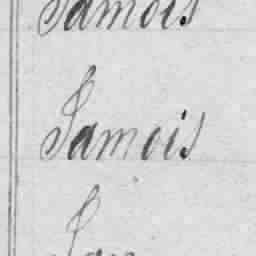 Samois
Samois